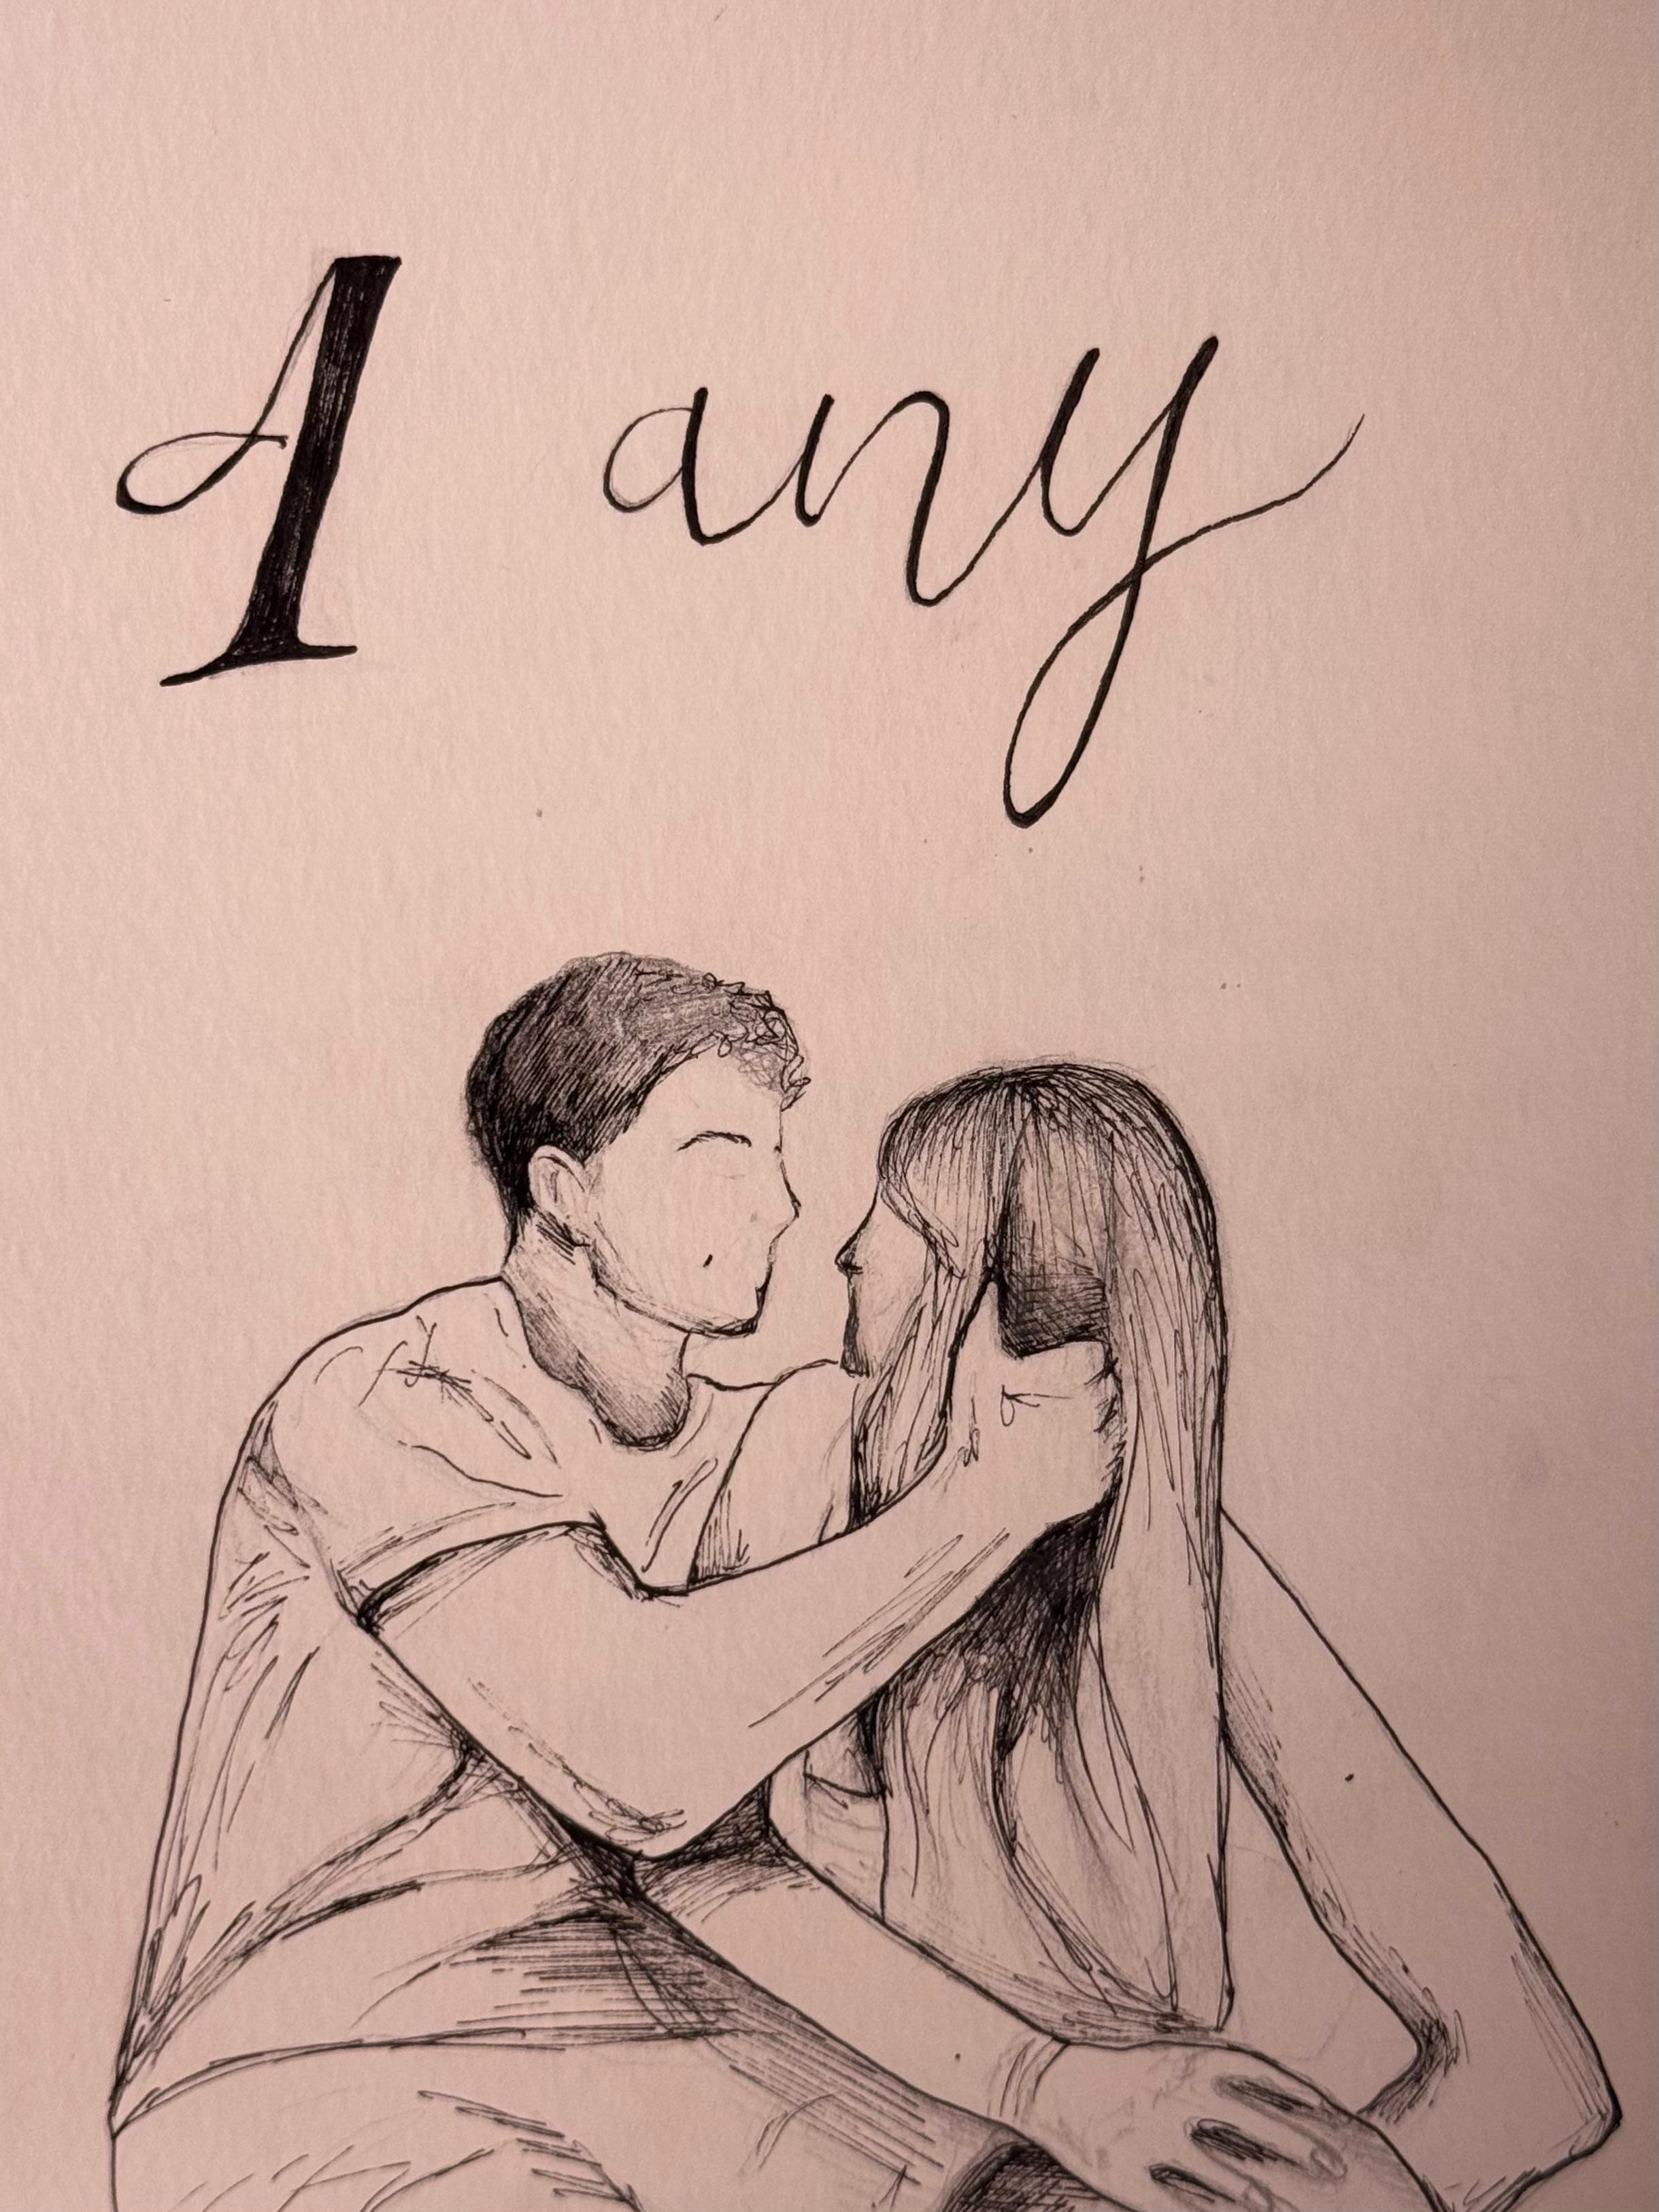 1 any